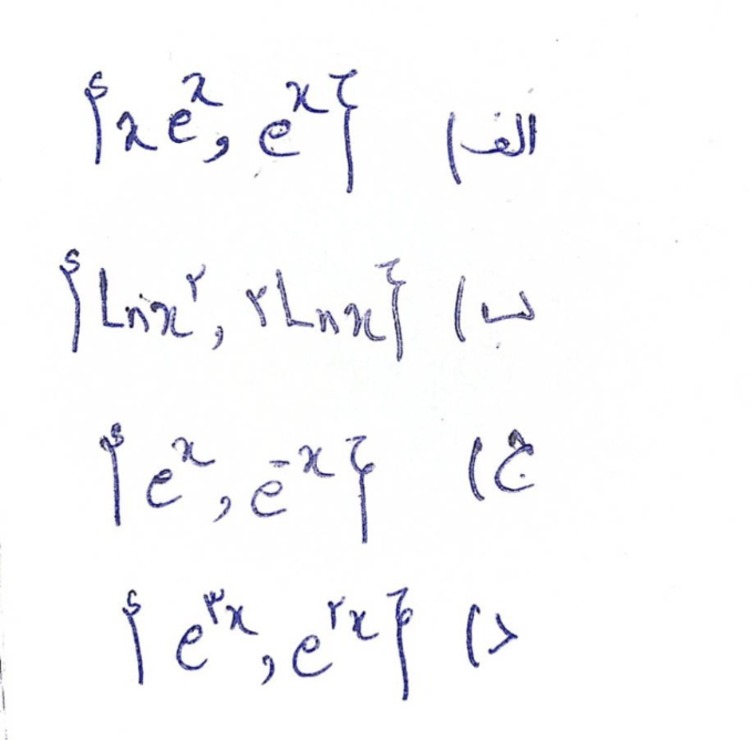 الف) {xeˣ, eˣ}
ب) {Lnx^۲, ۲Lnx}
ج) {eˣ, e⁻ˣ}
د) {e^۳x, e^۲x}